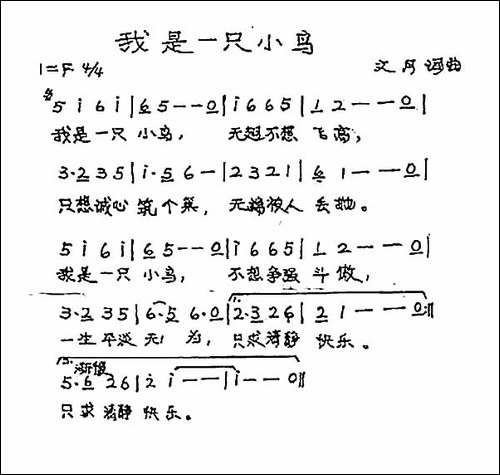 我是一只小鸟
1=F 4/4 文月 词曲
5 i 6 i | 6 5 - - 0 | i 6 6 5 | 1 2 - - 0 |
我是一只 小鸟， 无翅不想 飞高，
3·2 3 5 | i·5 6 - | 2 3 2 1 | 6 1 - - 0 |
只想诚心 筑个巢， 无端被人 丢抛。
5 i 6 i | 6 5 - - 0 | i 6 6 5 | 1 2 - - 0 |
我是一只 小鸟， 不想争强 斗
3·2 3 5 | 6·5 6·0 | 2·3 2 6 | 2 1 - - 0 :||
一生平淡 无 为， 只求清静 快乐。
渐慢
5·6 2 6 | 2 i - - | i - - 0 ||
只求清静 快乐。